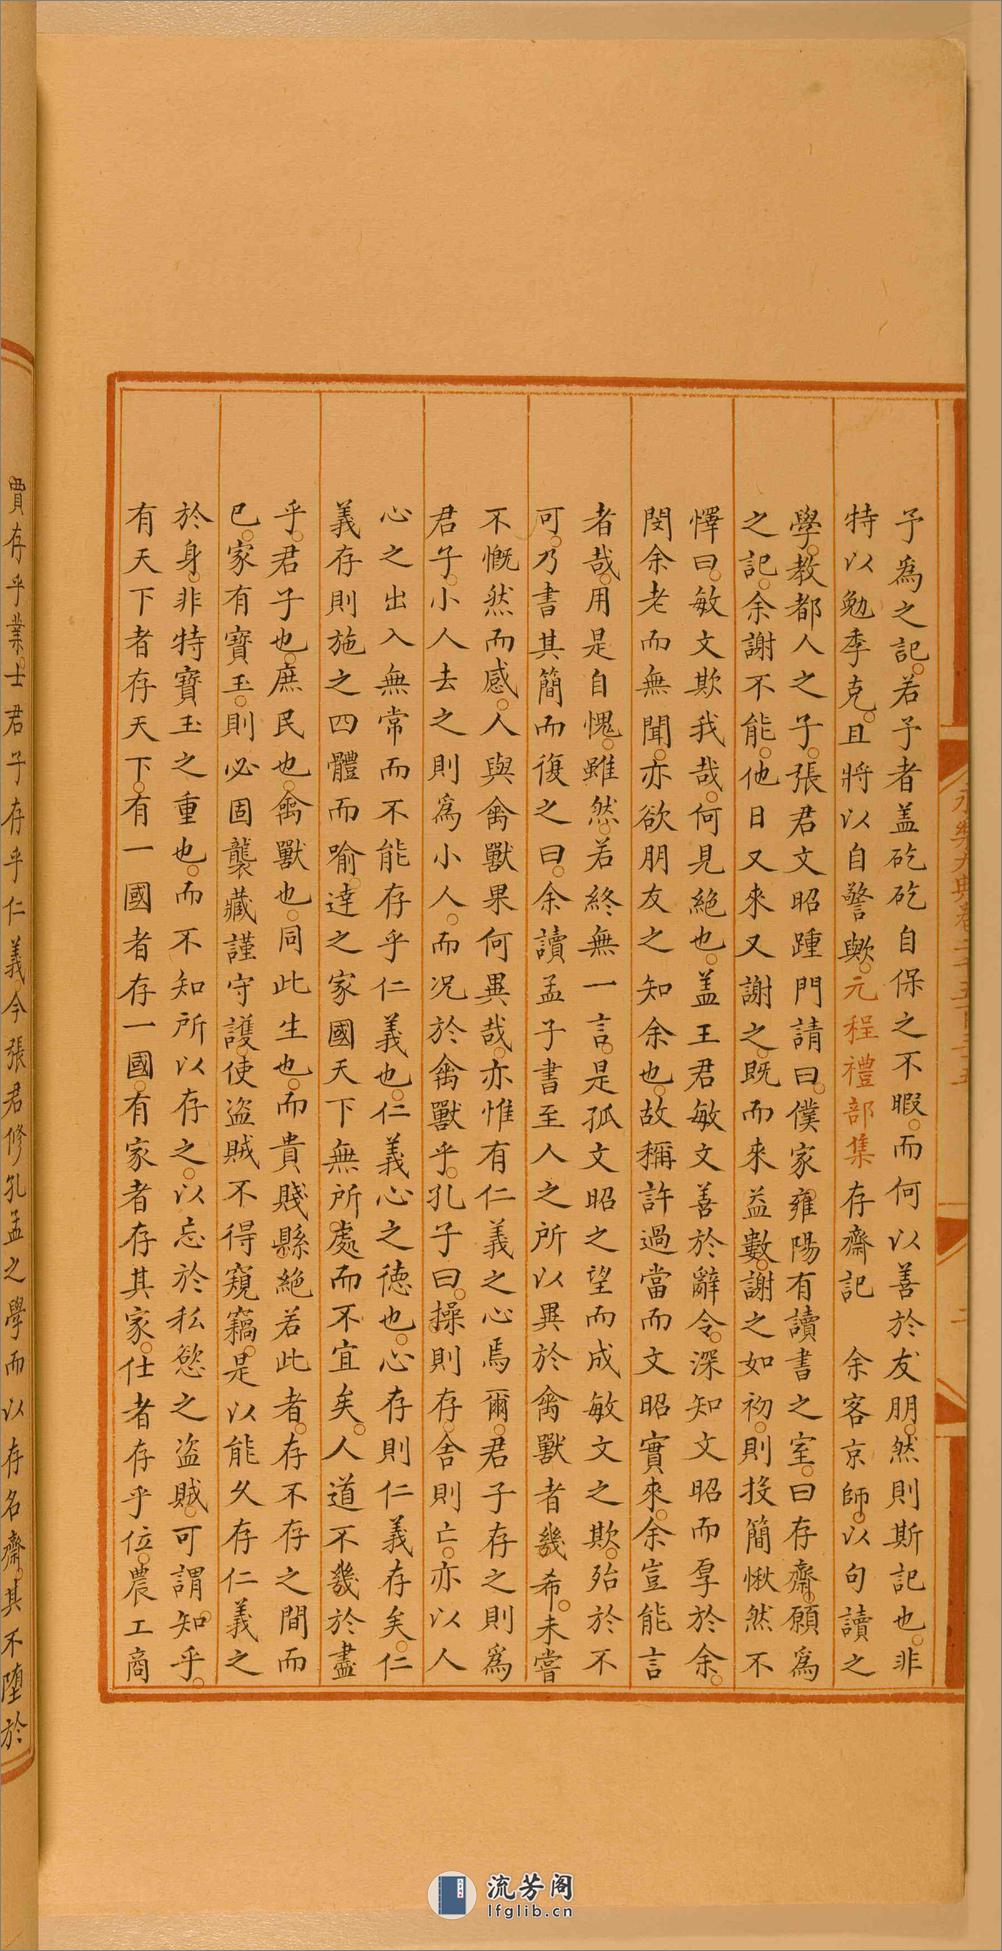 永樂大典卷二千五百三十五
二
予爲之記。若予者盖矻矻自保之不暇。而何以善於友朋。然則斯記也。非
特以勉季克。且將以自警歟。元程禮部集存齋記　余客京師。以句讀之
學。教都人之子。張君文昭踵門請曰。僕家雍陽有讀書之室。曰存齋。願爲
之記。余謝不能。他日又來又謝之。既而來益數。謝之如初。則投簡愀然不
懌曰。敏文欺我哉。何見絶也。盖王君敏文善於辭令。深知文昭而厚於余。
閔余老而無聞。亦欲朋友之知余也。故稱許過當而文昭實來。余豈能言
者哉。用是自愧。雖然。若終無一言。是孤文昭之望而成敏文之欺。殆於不
可。乃書其簡而復之曰。余讀孟子書至人之所以異於禽獸者幾希。未嘗
不慨然而感。人與禽獸果何異哉。亦惟有仁義之心焉爾。君子存之則爲
君子。小人去之則爲小人。而况於禽獸乎。孔子曰。操則存。舍則亡。亦以人
心之出入無常而不能存乎仁義也。仁義心之德也。心存則仁義存矣。仁
義存則施之四體而喻。達之家國天下無所處而不宜矣。人道不幾於盡
乎。君子也。庶民也。禽獸也。同此生也。而貴賤縣絶若此者。存不存之間而
已。家有寳玉。則必固襲藏謹守護。使盗賊不得窺竊。是以能久存仁義之
於身。非特寳玉之重也。而不知所以存之。以忘於私慾之盗賊。可謂知乎。
有天下者存天下。有一國者存一國。有家者存其家。仕者存乎位。農工商
賈存乎業。士君子存乎仁義今張君修孔孟之學而以存名齋。其不墮於
流芳阁
lfglib.cn